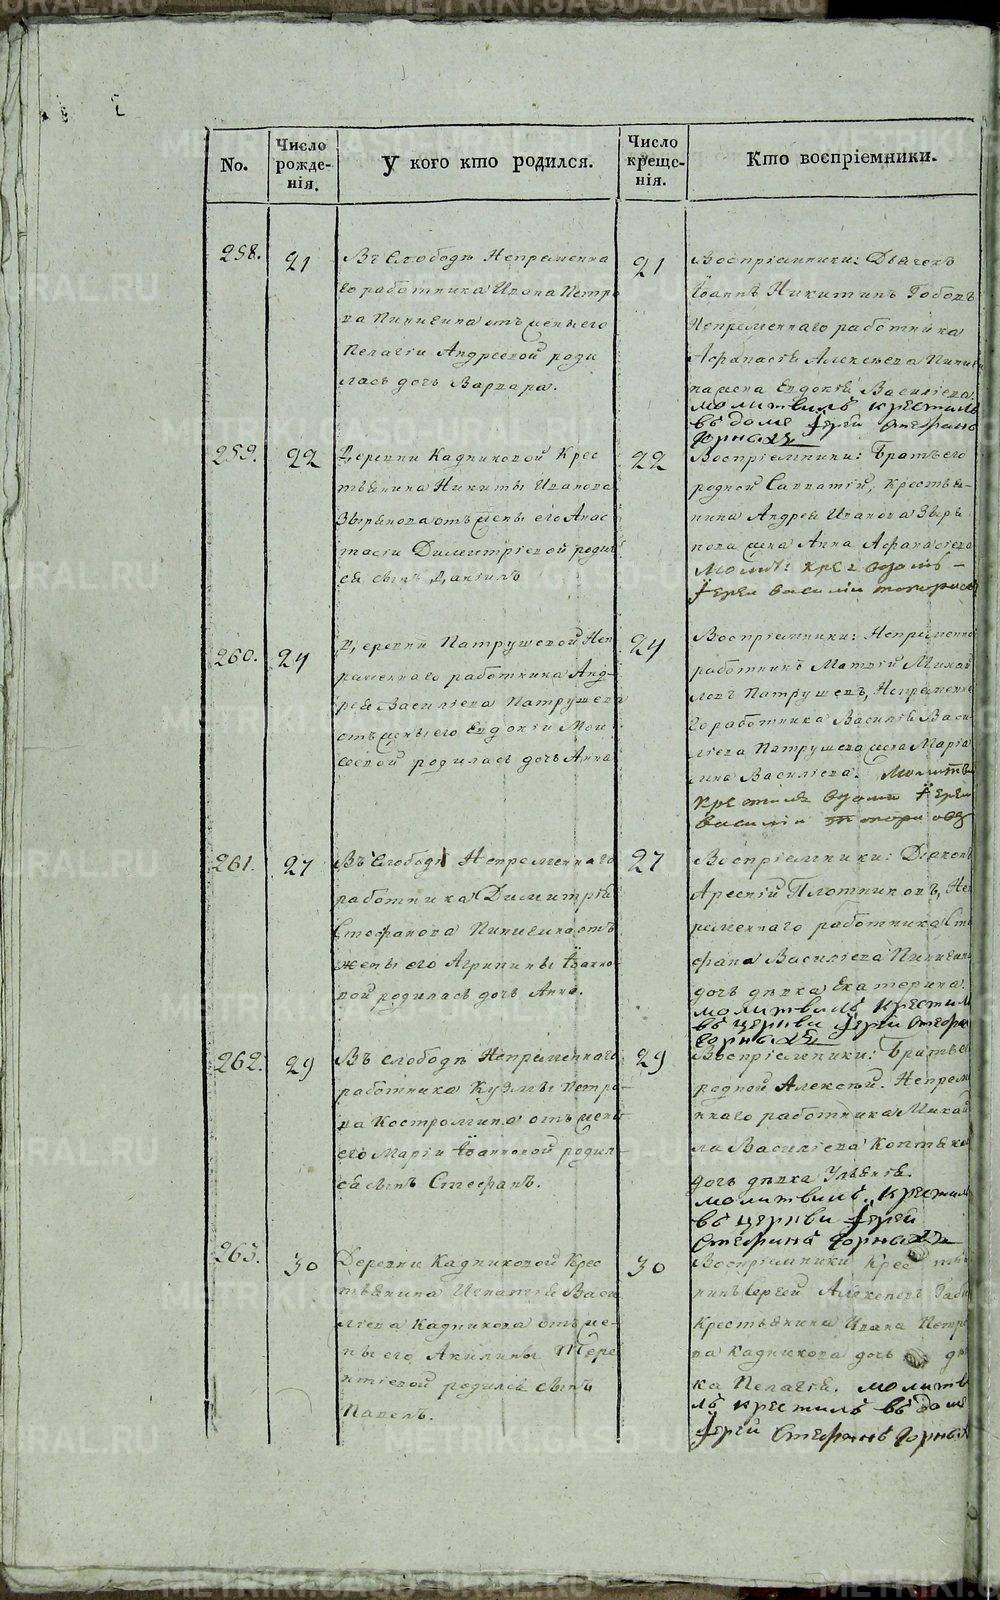 No.
Число рожде-нія.
У кого кто родился.
Число креще-нія.
Кто воспріемники.
258.
21
Въ Слободѣ Непременна
го работника Ивана Петро
ва Пинигина отъ жены его
Пелагіи Андреевой роди
лась дочь Варвара.
21
Воспріемники: Дьячекъ
Іоаннъ Никитинъ
Непременнаго работника
Афанасія Алексѣева Пиниги
на жена Евдокія Васильева.
молитвилъ крестилъ
въ доме Іерей Стефанъ
Горныхъ
259.
22
Деревни Кадниковой Крес
тьянина Никиты Иванова
Звѣрянова отъ жены его Анас
тасіи Димитріевой родил
ся сынъ Даніилъ
22
Воспріемники: Братъ его
родной Савватій, Крестья-
нина Андрея Иванова
нова жена Анна Афанасьева
Молит: крес въ домѣ -
Іерей Василіи
260.
24
Деревни Патрушевой Неп
ременнаго работника Анд-
рея Васильева Патрушева
отъ жены его Евдокіи Мои
сеевой родилась дочь Анна
24
Воспріемники: Непременной
работникъ Матвѣй Михай
ловъ Патрушевъ, Непременна
го работника Василія Васи
льева Патрушева жена Маріа
мна Васильева. Молитв
крестилъ въ доми Іерей
Василіи
261.
27
Въ Слободѣ Непременнаго
работника Димитрія
Стефанова Пинигина отъ
жены его Агрипины Іоанно
вой родилась дочь Анна.
27
Воспріемники: Діаконъ
Арсеній Плотниковъ, Неп
ременнаго работника Сте
фана Васильева Пинигина
дочь дѣвка Екатерина.
молитвилъ крестилъ
въ церкви Іерей Стефанъ
Горныхъ
262.
29
Въ слободѣ Непременнаго
работника Кузмы Петро-
ва Костромина отъ жены
его Маріи Іоанновой родил-
ся сынъ Стефанъ.
29
Воспріемники: Братъ его
родной Алексѣй. Непреме
ннаго работника Михай
ла Васильева Коптяков
дочь дѣвка Ульянія.
молитвилъ, крестилъ
въ церкви Іерей
Стефанъ Горныхъ
263.
30
Деревни Кадниковой Крес
тьянина Игнатія Васи
льева Кадникова отъ же-
ны его Акилины Тере
нтіевой родился сынъ
Павелъ.
30
Воспріемники Крестья
нинъ Сергей Алексеевъ
Крестьянина Ивана Петро
ва Кадникова дочь дѣв
ка Пелагія. молитви
лъ крестилъ въ доме
Іерей Стефанъ Горныхъ